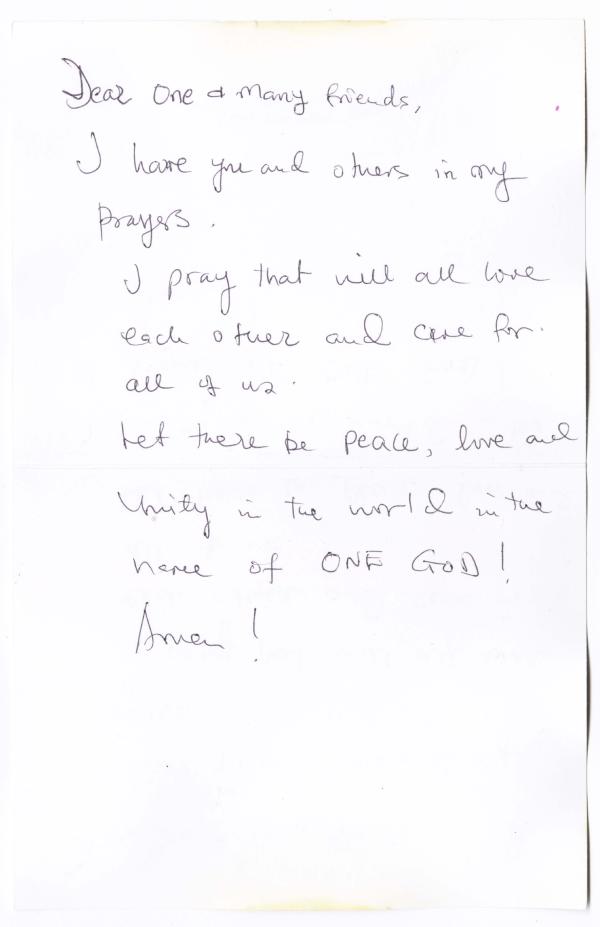 Dear One & Many friends,
I have you and others in my
prayers.
I pray that will all love
each other and care for
all of us.
Let there be peace, love and
Unity in the world in the
name of ONE GOD!
Amen!